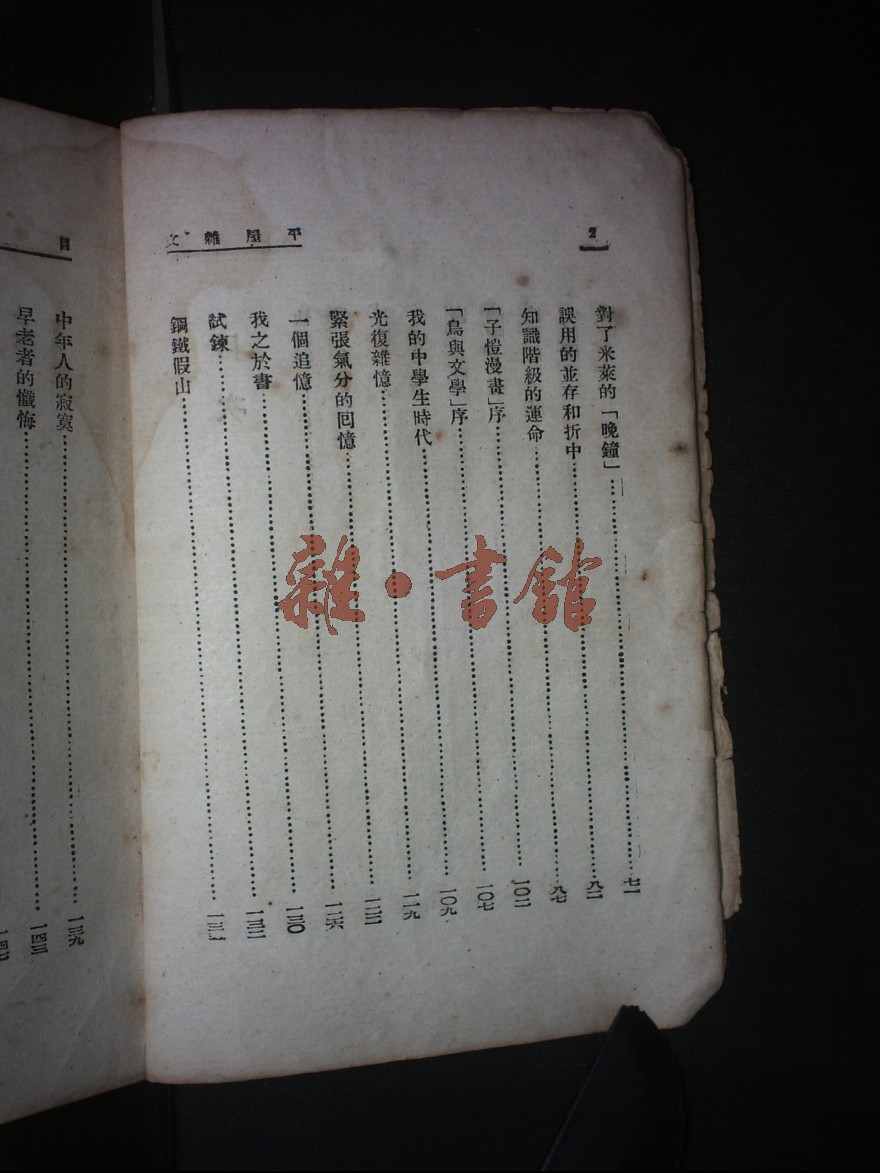 2
平屋雜文
對了米萊的「晚鐘」……七一
誤用的並存和折中……
知識階級的運命……
「子愷漫畫」序……一〇二
「鳥與文學」序……一〇七
我的中學生時代……一〇九
光復雜憶……一一九
緊張氣分的囘憶……
一個追憶……一二六
我之於書……一三〇
試鍊……一三二
鋼鐵假山……
目
中年人的寂寞……一三九
早老者的懺悔……一四三
雜·書館